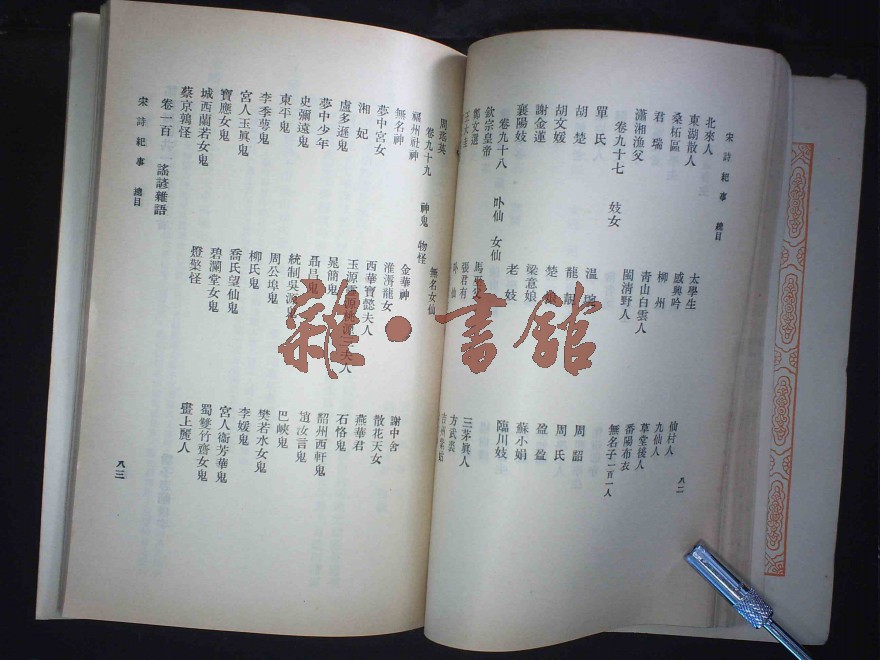 宋詩紀事 總目
八二
北來人
太學生
仙村人
東湖散人
感興吟
九仙人
桑柘區
柳州
草堂後人
君瑞
青山白雲人
番陽布衣
瀟湘漁父
閩清野人
無名子一百一人
卷九十七 妓女
單氏
溫婉
周韶
胡楚
龍靚
周氏
胡文媛
楚娘
盈盈
謝金蓮
梁意娘
蘇小娟
襄陽妓
老妓
臨川妓
卷九十八 卟仙 女仙
欽宗皇帝
三茅真人
鄭文選
張君有
方武裘
周瑶英
無名女仙
卷九十九 神鬼 物怪
福州社神
金華神
謝中舍
無名神
灌濟龍女
散花天女
夢中宮女
西華寶懿夫人
燕華君
湘妃
石恪鬼
盧多遜鬼
晁簡鬼
韶州西軒鬼
夢中少年
聶昌鬼
史彌遠鬼
統制吳源鬼
巴峽鬼
東平鬼
周公埠鬼
樊若水女鬼
李季萼鬼
柳氏鬼
李媛鬼
宮人玉真鬼
喬氏望仙鬼
宮人衞芳華鬼
寶應女鬼
碧瀾堂女鬼
蜀雙竹齋女鬼
城西蘭若女鬼
燈檠怪
畫上麗人
蔡京鵝怪
卷一百 謠諺雜語
宋詩紀事 總目
八三
雜·書館